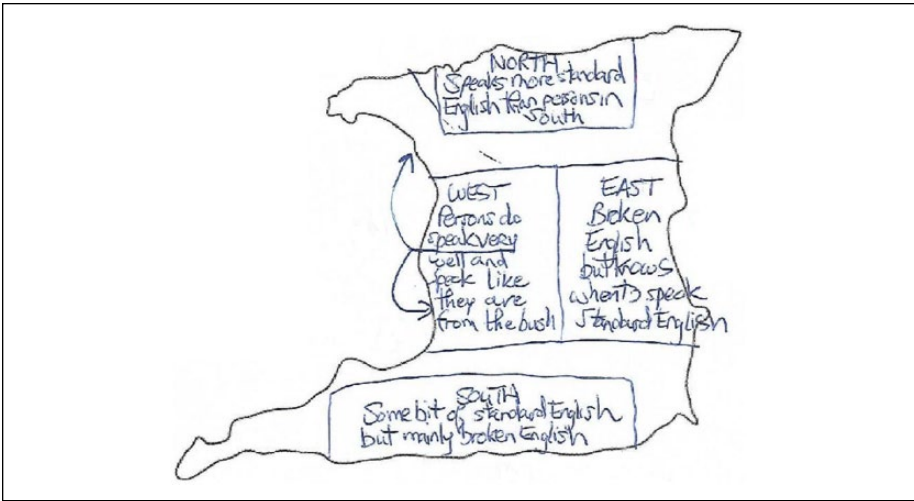 NORTH
Speaks more standard
English than persons in
South
WEST
Persons do
speak very
well and
speak like
they are
from the bush
EAST
Broken
English
but knows
when to speak
Standard English
SOUTH
Some bit of standard English
but mainly broken English